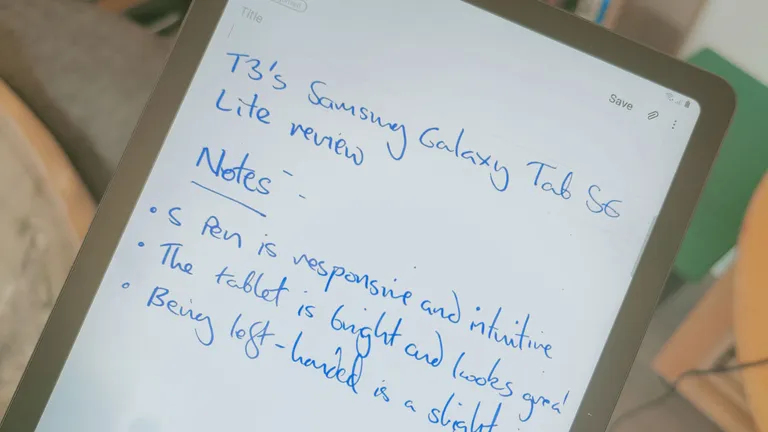 Title
Save
T3's Samsung Galaxy Tab S6
Lite review
Notes -
• S Pen is responsive and intuitive
• The tablet is bright and looks great
• Being left-handed is a slight